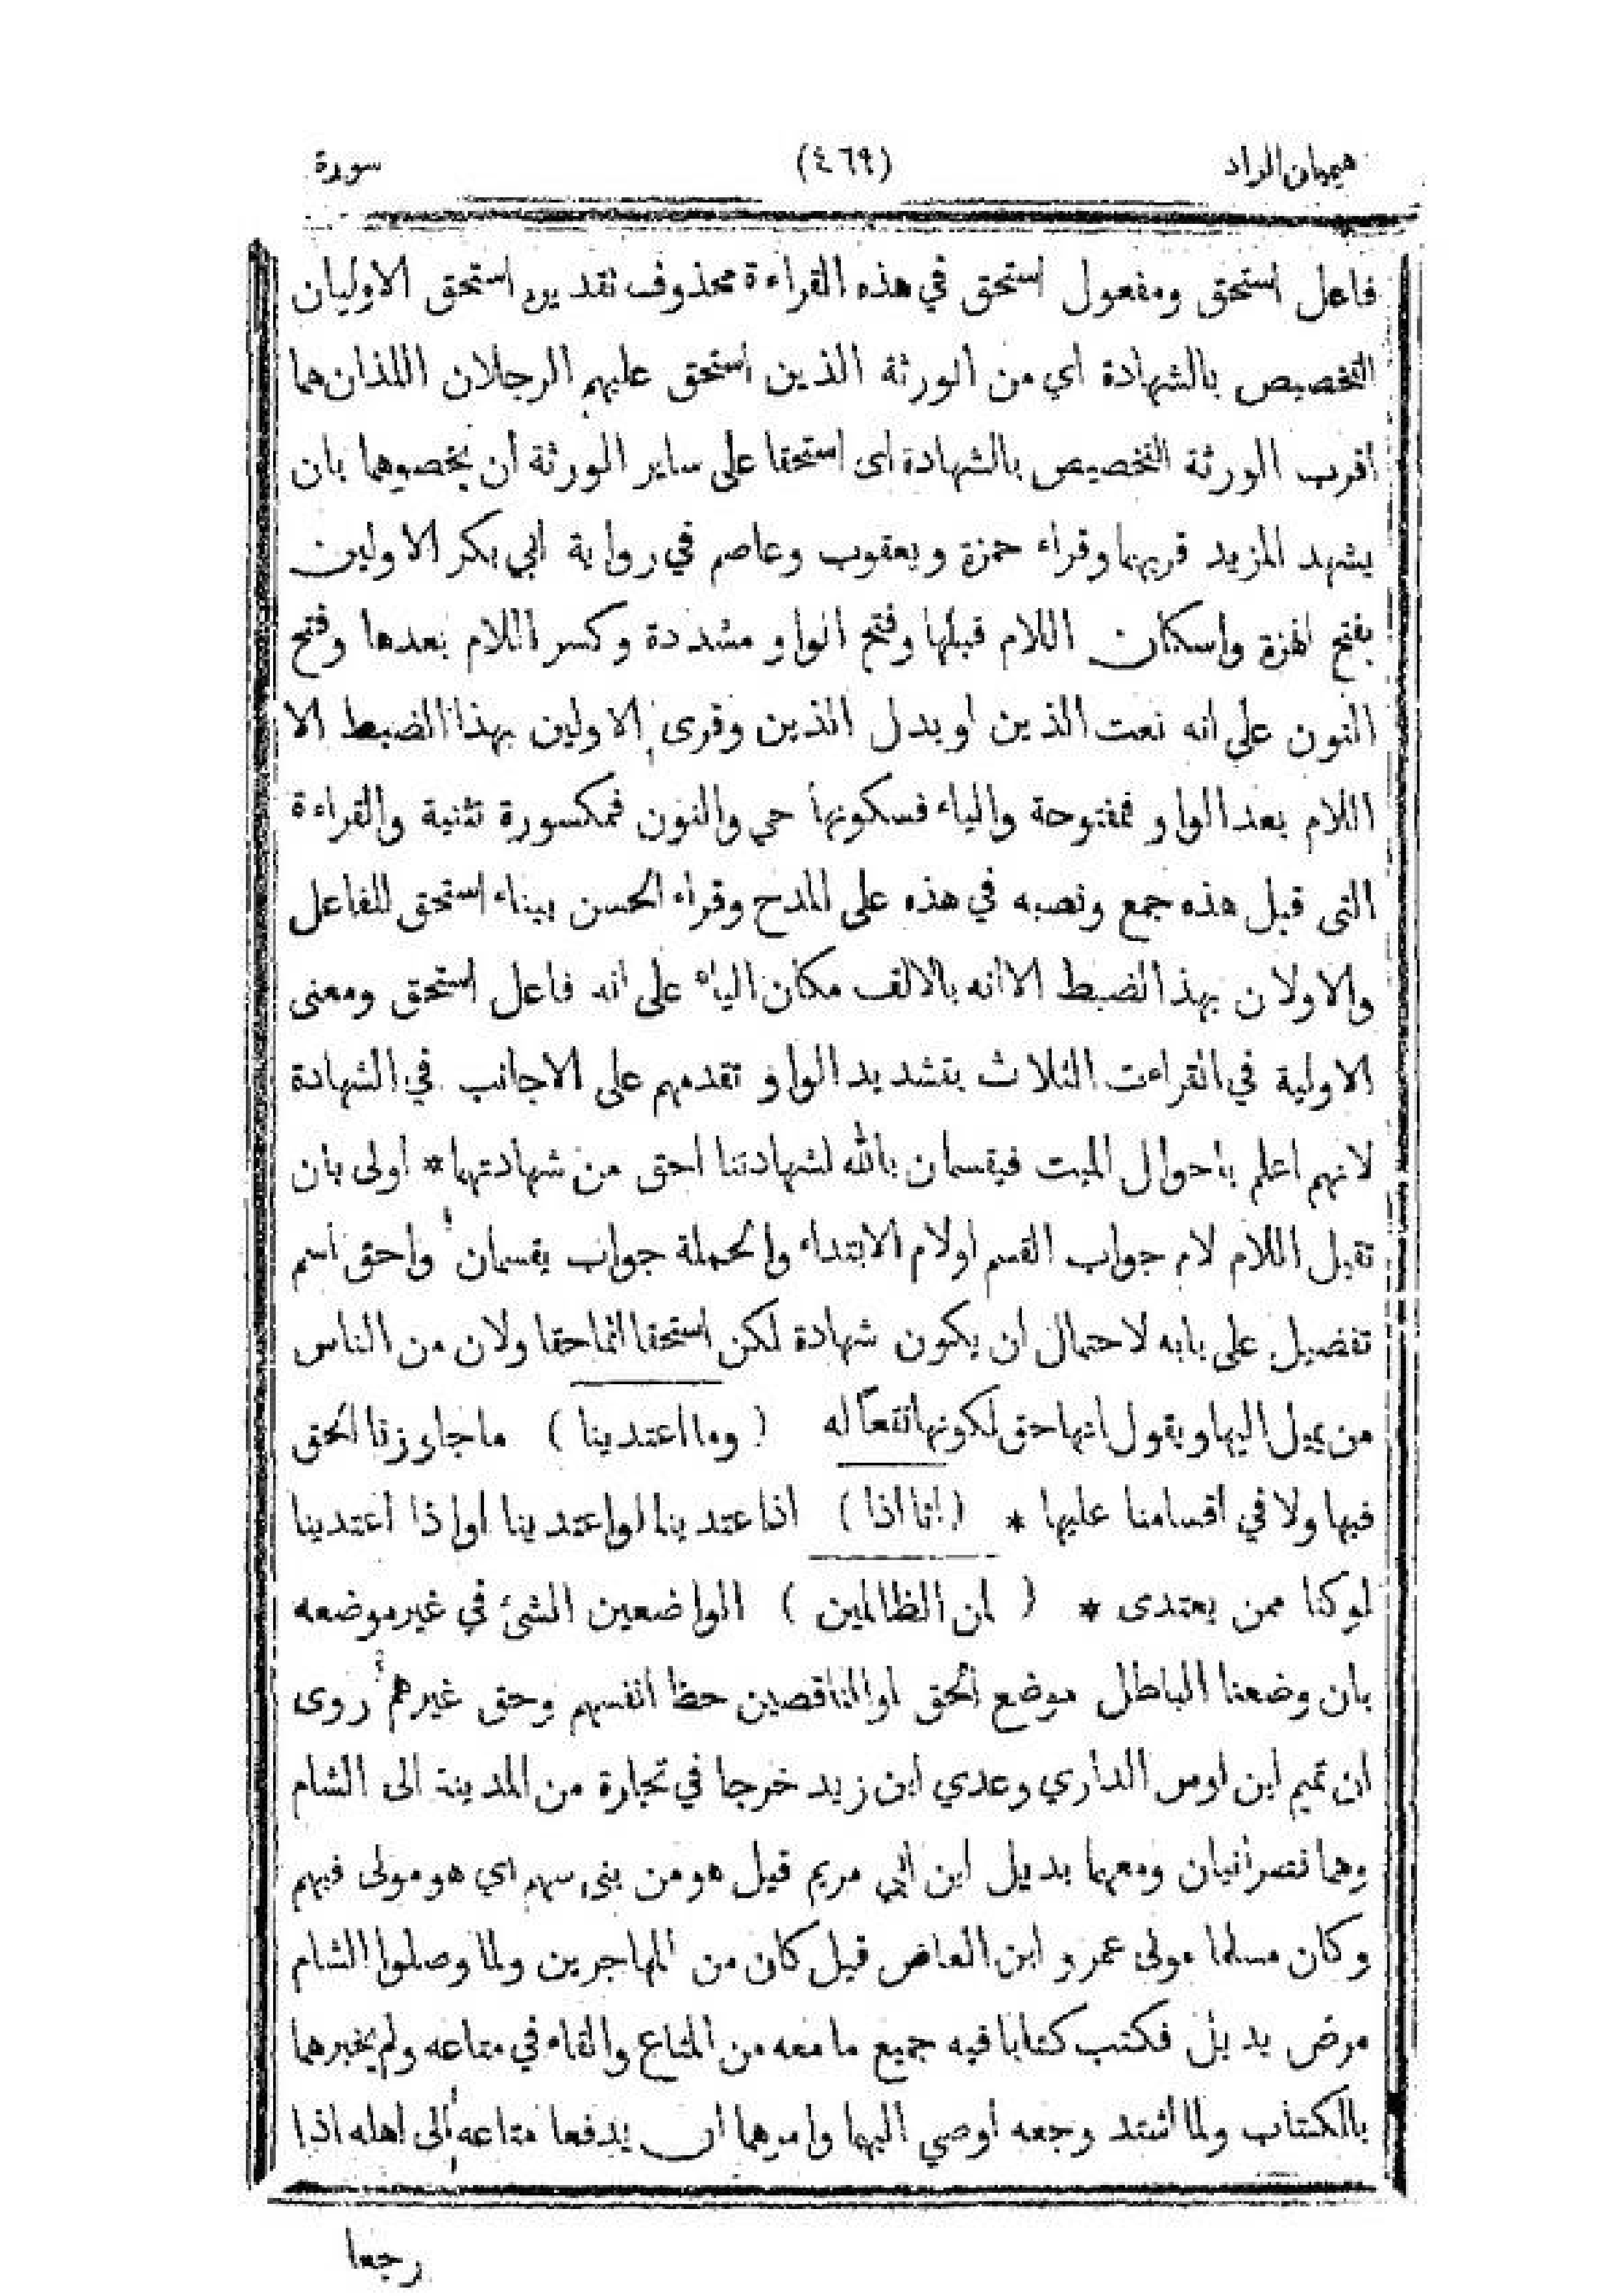 هيميان الزاد (٤٦٩) سورة
فاعل استحق ومفعول استحق في هذه القراءة محذوف تقديره استحق الاوليان
التخصيص بالشهادة اي من الورثة الذين استحق عليهم الرجلان اللذان هما
اقرب الورثة التخصيص بالشهادة اى استحقا على ساير الورثة أن يخصوهما بان
يشهد المزيد قربهما وقراء حمزة ويعقوب وعاصم في رواية ابي بكر الاولين
بفتح الهمزة واسكان اللام قبلها وفتح الواو مشددة وكسر اللام بعدها وفتح
النون على انه نعت الذين او بدل الذين وقرىء الاولين بهذا الضبط الا
اللام بعد الواو فمفتوحة والياء فسكونها حي والنون فمكسورة تثنية والقراءة
التى قبل هذه جمع ونصبه في هذه على المدح وقراء الحسن ببناء استحق للفاعل
والاولان بهذ الضبط الا انه بالالف مكان الياء على انه فاعل استحق ومعنى
الاولية في القراءت الثلاث بتشديد الواو تقدمهم على الاجانب في الشهادة
لانهم اعلم باحوال الميت فيقسمان بالله لشهادتنا احق من شهادتهما * اولى بان
تقبل اللام لام جواب القسم اولام الابتداء والجملة جواب يقسمان واحق اسم
تفضيل على بابه لاحتمال ان يكون شهادة لكن استحقا اثما حقا ولان من الناس
من يميل اليها ويقول انها حق لكونها نفعا له (وما اعتدينا) ما جاوزنا الحق
فيها ولا في اقسامنا عليها * (انا اذا) اذا عتدينا لواعتدينا اواذا اعتدينا
لوكنا ممن يعتدى * (لمن الظالمين) الواضعين الشئ في غير موضعه
بان وضعنا الباطل موضع الحق او الناقصين حظ انفسهم وحق غيرهم روى
ان تميم ابن اوس الداري وعدي ابن زيد خرجا في تجارة من المدينة الى الشام
وهما نصرانيان ومعهما بديل ابن ابي مريم قيل هو من بنى سهم اي هو مولى فيهم
وكان مسلما مولى عمرو ابن العاص قيل كان من المهاجرين ولما وصلوا الشام
مرض بديل فكتب كتابا فيه جميع ما معه من المتاع والقاه في متاعه ولم يخبرهما
بالكتاب ولما اشتد وجعه اوصي اليهما وامرهما ان يدفعا متاعه الى اهله اذا
رجعا